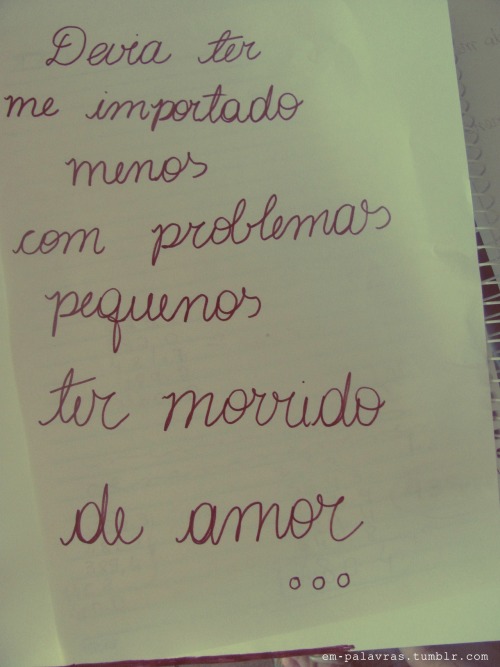 Devia ter
me importado
menos
com problemas
pequenos
ter morrido
de amor
...
em-palavras.tumblr.com